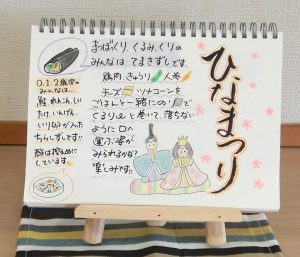 ひなまつり
まつぼっくり、くるみ、くりの
みんなは てまきずしです。
鶏肉、きゅうり 人参
チーズ ツナコーンを
ごはんと一緒にのりで
くるりんと巻いて、落ちない
ように口へ
運ぶ姿が
みられるかな?
楽しみです!!
0.1.2歳児の
みんなは…
鮭、れんこん、しい
たけ、いんげん、
いり卵が入った
ちらしずしです!!
しています。